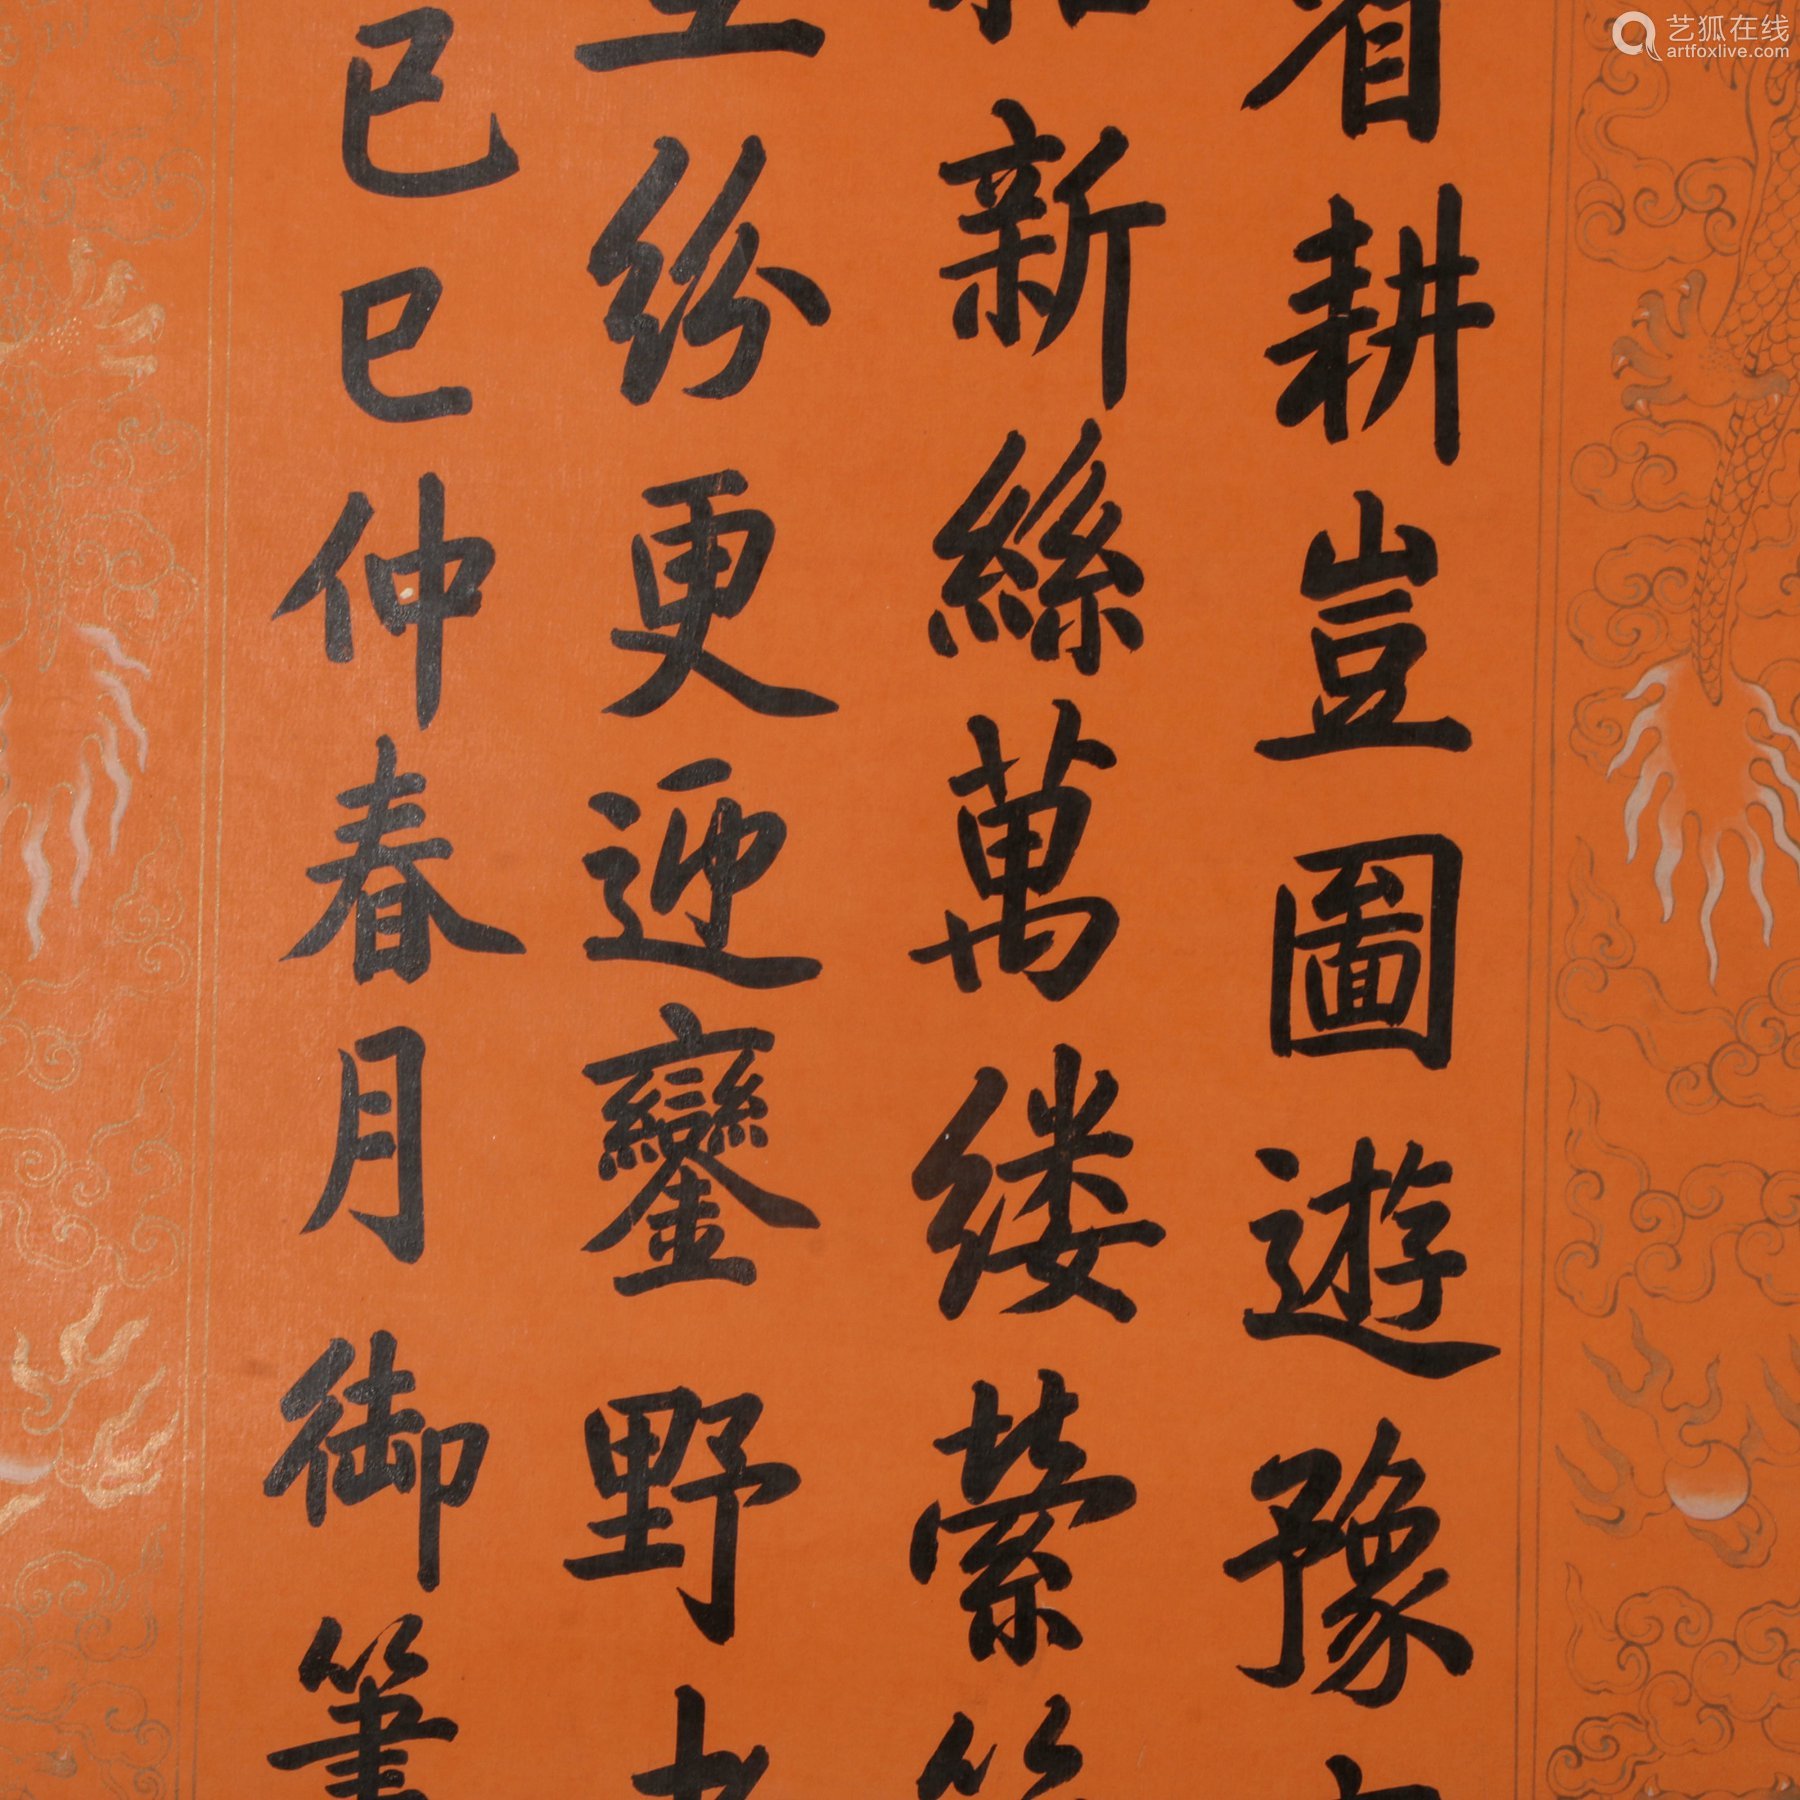 省耕豈圖遊豫
新絲萬缕縈
纷更迎鑾野
已巳仲春月御筆
艺狐在线
artfoxlive.com